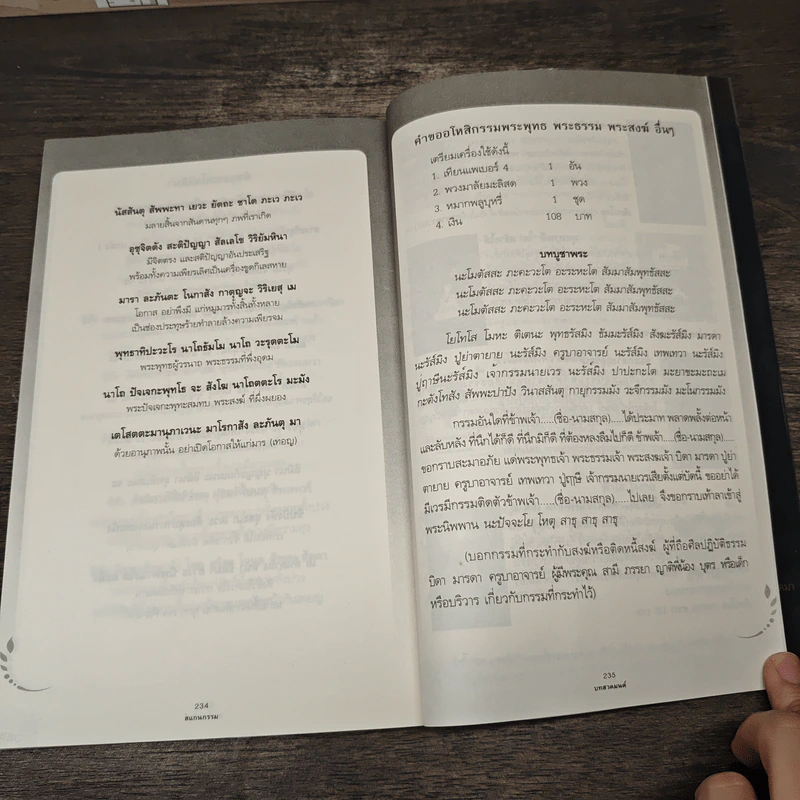 นัสสันตุ สัพพะทา เยวะ ยัตถะ ชาโต ภะเว ภะเว
มลายสิ้นจากสันดานทุกๆ ภพที่เราเกิด
อุชุจิตตัง สะติปัญญา สัลเลโข วิริยัมหินา
มีจิตตรง และสติปัญญาอันประเสริฐ
พร้อมทั้งความเพียรเลิศเป็นเครื่องขูดกิเลสหาย
มารา ละภันตะ โนกาสัง กาตุญจะ วิริเยสุ เม
โอกาส อย่าพึงมี แก่หมู่มารทั้งสิ้นทั้งหลาย
เป็นช่องประทุษร้ายทำลายล้างความเพียรจม
พุทธาทิปะวะโร นาโถธัมโม นาโถ วะรุตตะโม
พระพุทธผู้วรนาถ พระธรรมที่พึ่งอุดม
นาโถ ปัจเจกะพุทโธ จะ สังโฆ นาโถตตะโร มะมัง
พระปัจเจกะพุทธสมทบ พระสงฆ์ ที่ผึ่งผยอง
เตโสตตะมานุภาเวนะ มาโรกาสัง ละภันตุ มา
ด้วยอานุภาพนั้น อย่าเปิดโอกาสให้แก่มาร (เทอญ)
234
สแกนกรรม
คำขออโหสิกรรมพระพุทธ พระธรรม พระสงฆ์ อื่นๆ
เตรียมเครื่องใช้ดังนี้
1. เทียนแพเบอร์ 4 1 อัน
2. พวงมาลัยมะลิสด 1 พวง
3. หมากพลูบุหรี่ 1 ชุด
4. เงิน 108 บาท
บทบูชาพระ
นะโมตัสสะ ภะคะวะโต อะระหะโต สัมมาสัมพุทธัสสะ
นะโมตัสสะ ภะคะวะโต อะระหะโต สัมมาสัมพุทธัสสะ
นะโมตัสสะ ภะคะวะโต อะระหะโต สัมมาสัมพุทธัสสะ
โยโทโส โมหะ ติเตนะ พุทธรัสมิง ธัมมะรัส์มิง สังฆะรัส์มิง มารดา
นะรัส์มิง ปู่ย่าตายาย นะรัส์มิง ครูบาอาจารย์ นะรัส์มิง เทพเทวา นะรัส์มิง
ปู่ฤาษีนะรัส์มิง เจ้ากรรมนายเวร นะรัส์มิง ปาปะกะโต มะยาขะมะถะเม
กะตังโทสัง สัพพะปาปัง วินาสสันตุ กายุกรรมมัง วะจีกรรมมัง มะโนกรรมมัง
กรรมอันใดที่ข้าพเจ้า.....(ชื่อ-นามสกุล).....ได้ประมาท พลาดพลั้งต่อหน้า
และลับหลัง ที่นึกได้ก็ดี ที่นึกมิก็ดี ที่ต้องหลงลืมไปก็ดี ข้าพเจ้า.....(ชื่อ-นามสกุล).....
ขอกราบสะมาอภัย แด่พระพุทธเจ้า พระธรรมเจ้า พระสงฆเจ้า บิดา มารดา ปู่ย่า
ตายาย ครูบาอาจารย์ เทพเทวา ปู่ฤาษี เจ้ากรรมนายเวรเสียตั้งแต่บัดนี้ ขออย่าได้
มีเวรมีกรรมติดตัวข้าพเจ้า.....(ชื่อ-นามสกุล).....ไปเลย จึงขอกราบเท้าลาเข้าสู่
พระนิพพาน นะปัจจะโย โหตุ สาธุ สาธุ สาธุ
(บอกกรรมที่กระทำกับสงฆ์หรือติดหนี้สงฆ์ ผู้ที่ถือศีลปฏิบัติธรรม
บิดา มารดา ครูบาอาจารย์ ผู้มีพระคุณ สามี ภรรยา ญาติพี่น้อง บุตร หรือเด็ก
หรือบริวาร เกี่ยวกับกรรมที่กระทำไว้)
235
บทสวดมนต์